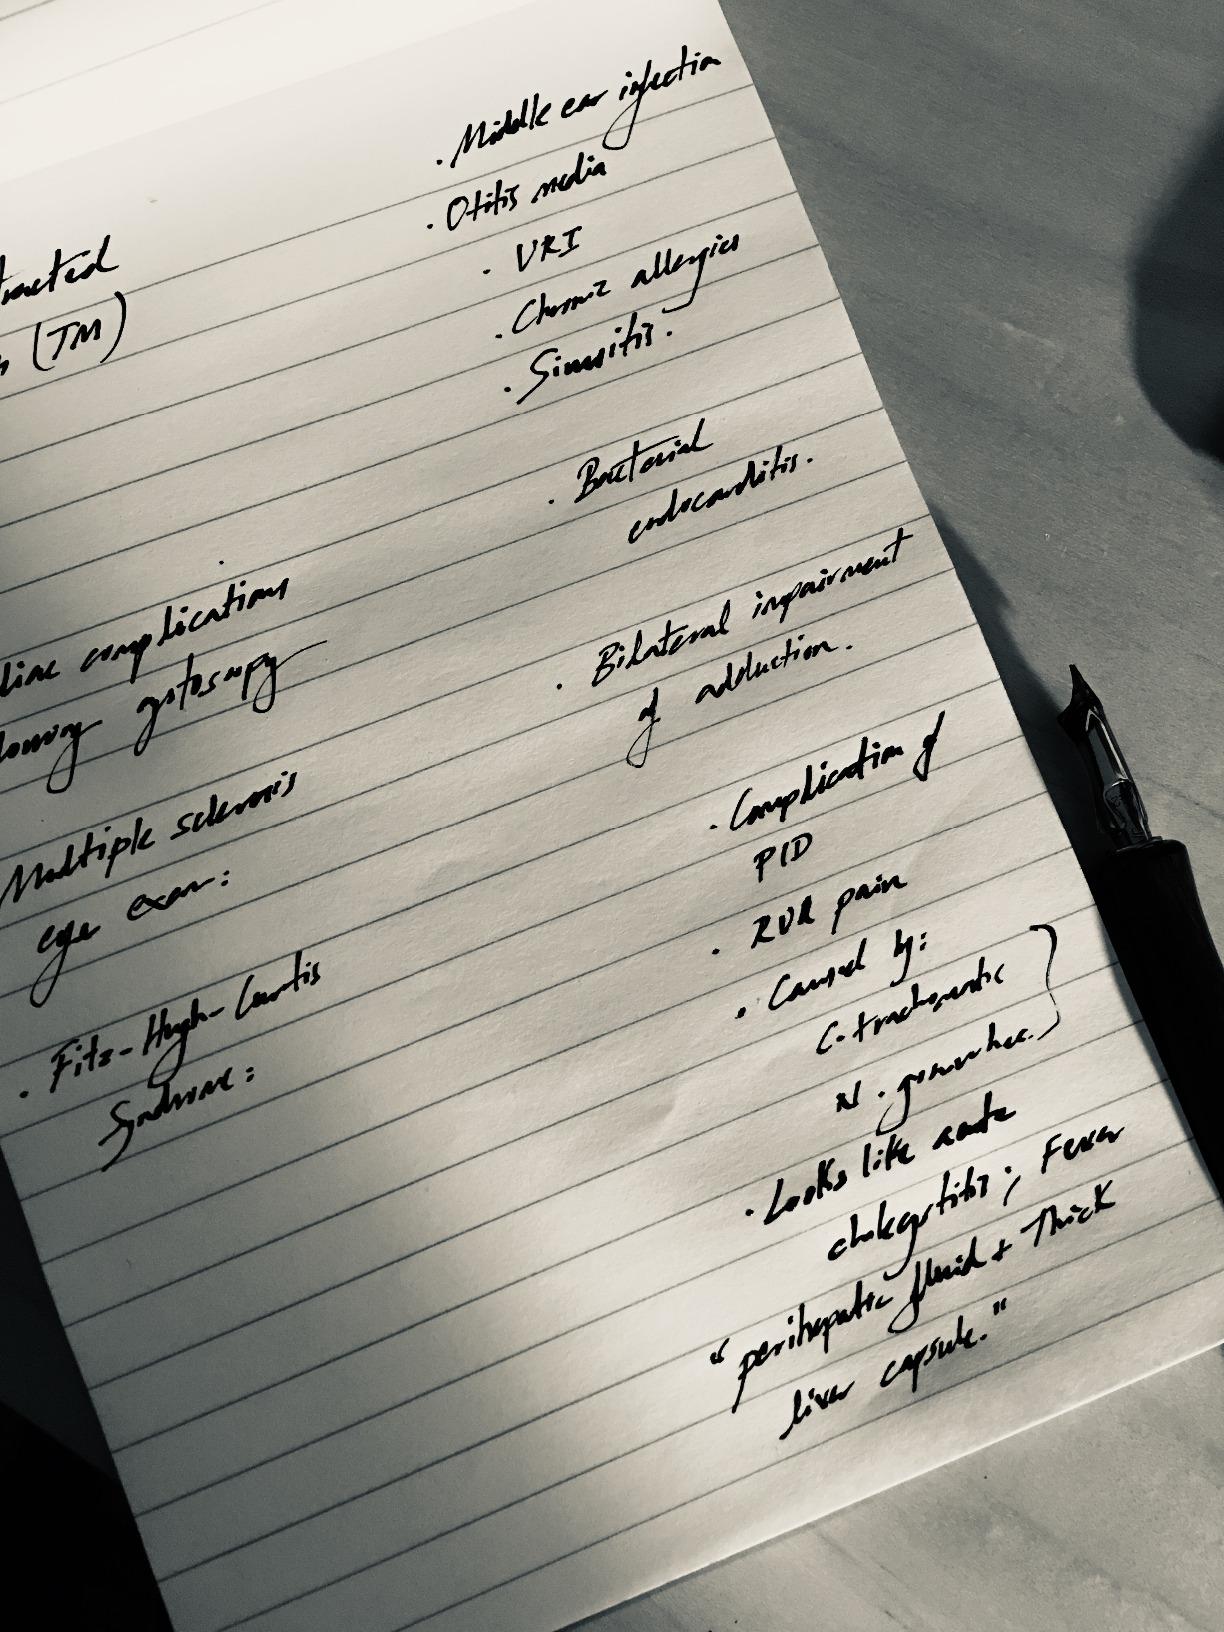 · Middle ear infection
· Otitis media
· URI
· Chronic allergies
· Sinusitis.
(TM)
· Bacterial
endocarditis.
complications
· Bilateral impairment
of adduction.
Multiple sclerosis
eye exam:
· Complication of
PID
· RUQ pain
· Caused by:
C. trachomatis
N. gonorrhea.
· Fitz-Hugh-Curtis
Syndrome:
· Looks like acute
; Fever
"perihepatic fluid + Thick
liver capsule."